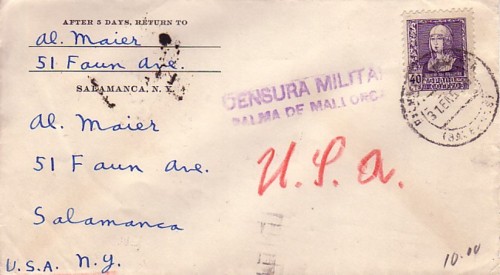 AFTER 5 DAYS, RETURN TO
Al. Maier
51 Faun Ave.
SALAMANCA, N. Y.
CENSURA MILITAR
PALMA DE MALLORCA
40
Al. Maier
51 Faun Ave.
Salamanca
U.S.A. N.Y.
U.S.A.
10.00